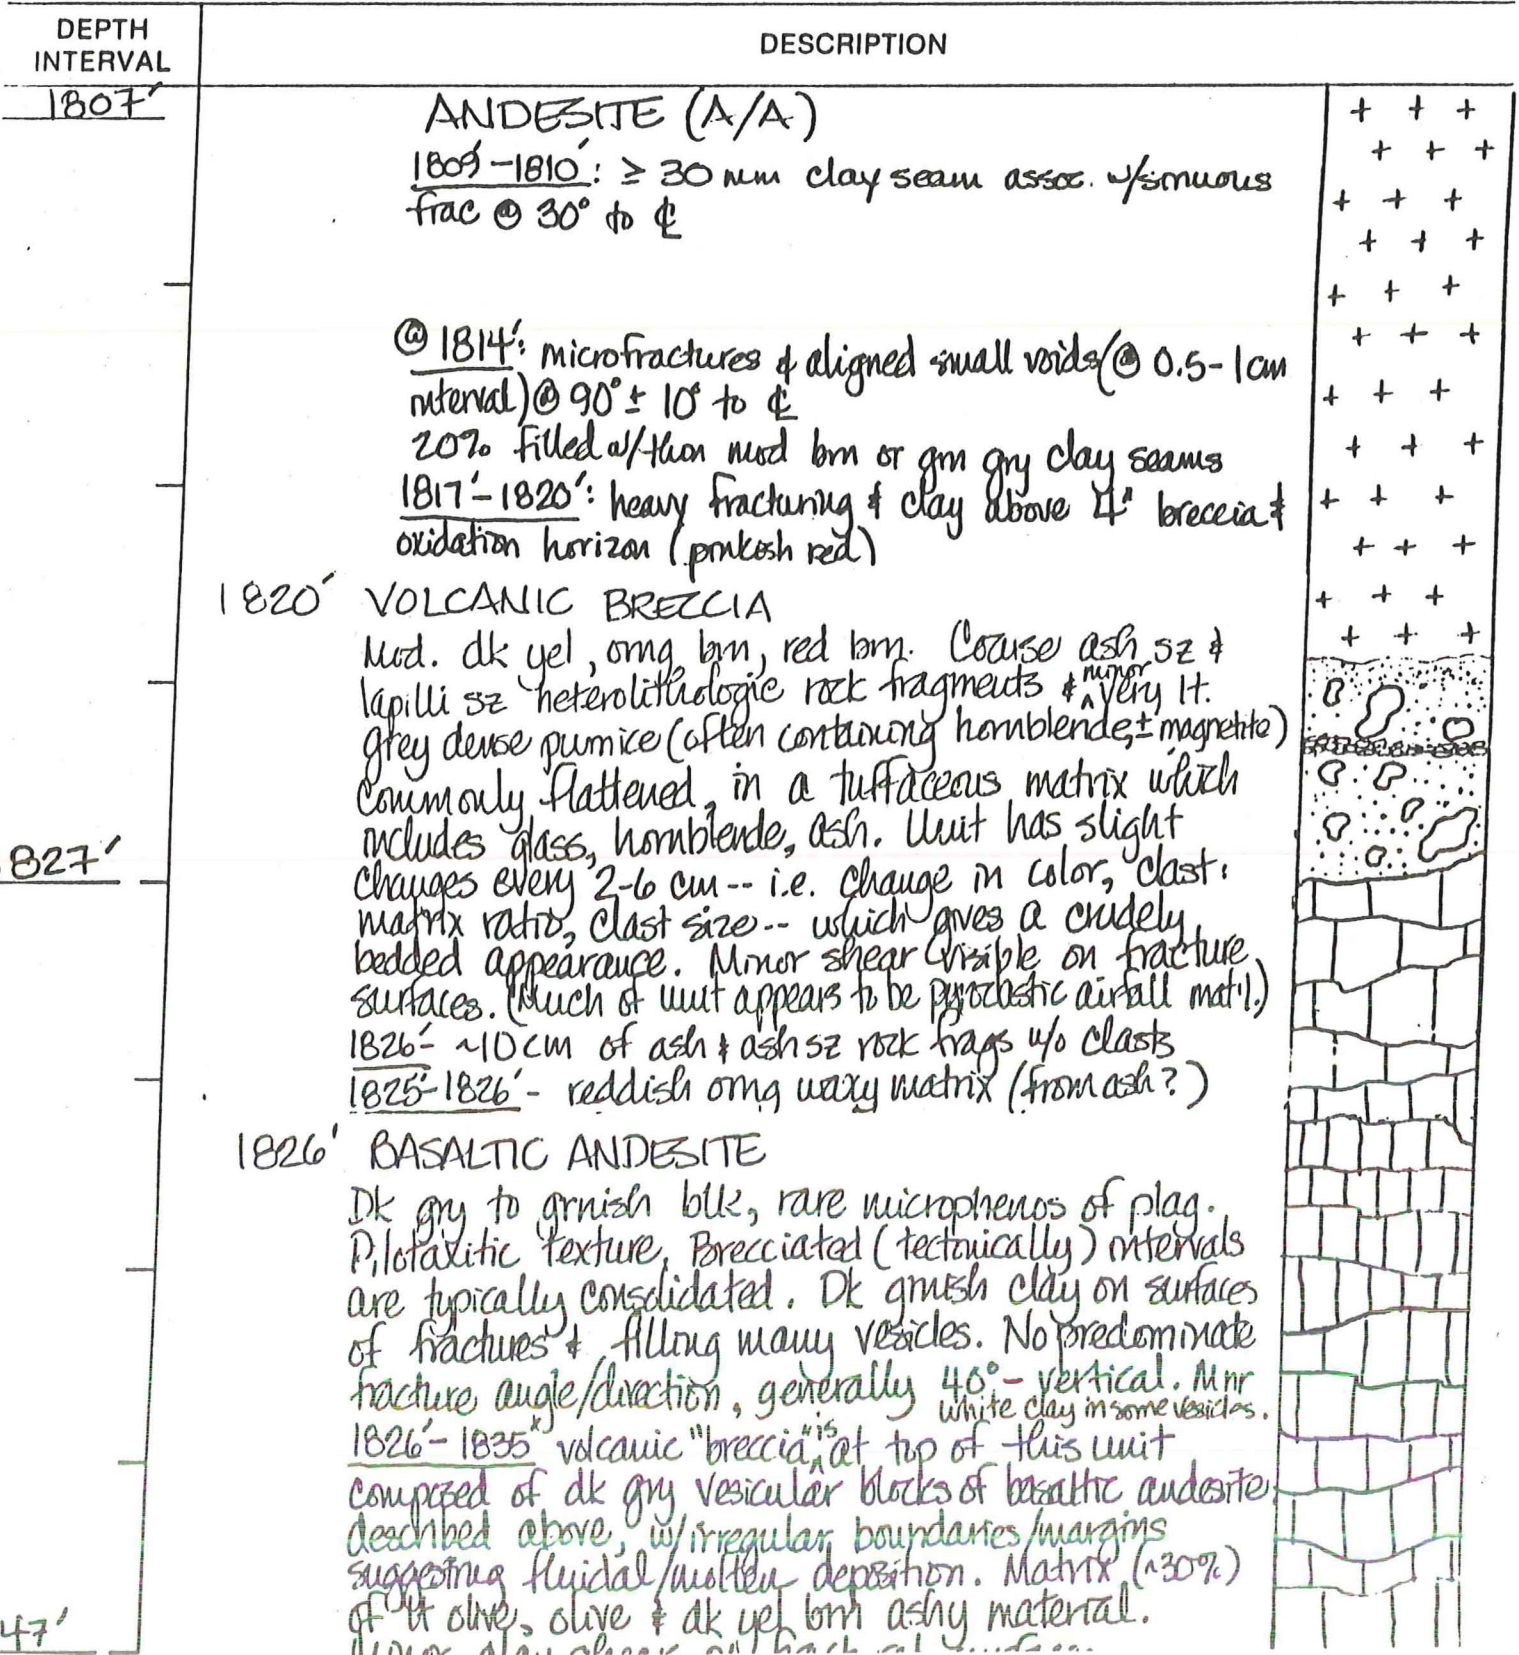 DEPTH INTERVAL
DESCRIPTION
1807'
ANDESITE (A/A)
1809'-1810': ≥ 30 mm clay seam assoc. w/sinuous
frac @ 30° to ℄
@ 1814': microfractures & aligned small voids (@ 0.5-1cm
interval) @ 90° ± 10° to ℄
20% filled w/thin mod brn or grn gry clay seams
1817'-1820': heavy fracturing & clay above 4" breccia &
oxidation horizon (pinkish red)
1820' VOLCANIC BRECCIA
Mod. dk yel, orng brn, red brn. Coarse ash sz &
lapilli sz heterolithologic rock fragments & minor very lt.
grey dense pumice (often containing hornblende, ± magnetite)
commonly flattened, in a tuffaceous matrix which
includes glass, hornblende, ash. Unit has slight
827'
changes every 2-6 cm -- i.e. change in color, clast:
matrix ratio, clast size -- which gives a crudely
bedded appearance. Minor shear visible on fracture
surfaces. (Much of unit appears to be pyroclastic airfall mat'l.)
1826'- ~10 cm of ash & ash sz rock frags w/o clasts
1825'-1826'- reddish orng waxy matrix (from ash?)
1826' BASALTIC ANDESITE
Dk gry to grnish blk, rare microphenos of plag.
Pilotaxitic texture, Brecciated (tectonically) intervals
are typically consolidated. Dk grnish clay on surfaces
of fractures & filling many vesicles. No predominate
fracture angle/direction, generally 40°- vertical. Mnr
white clay in some vesicles.
1826'-1835' volcanic "breccia" is at top of this unit
composed of dk gry vesicular blocks of basaltic andesite
described above, w/irregular boundaries/margins
suggesting fluidal/molten deposition. Matrix (~30%)
of lt olive, olive & dk yel brn ashy material.
47'